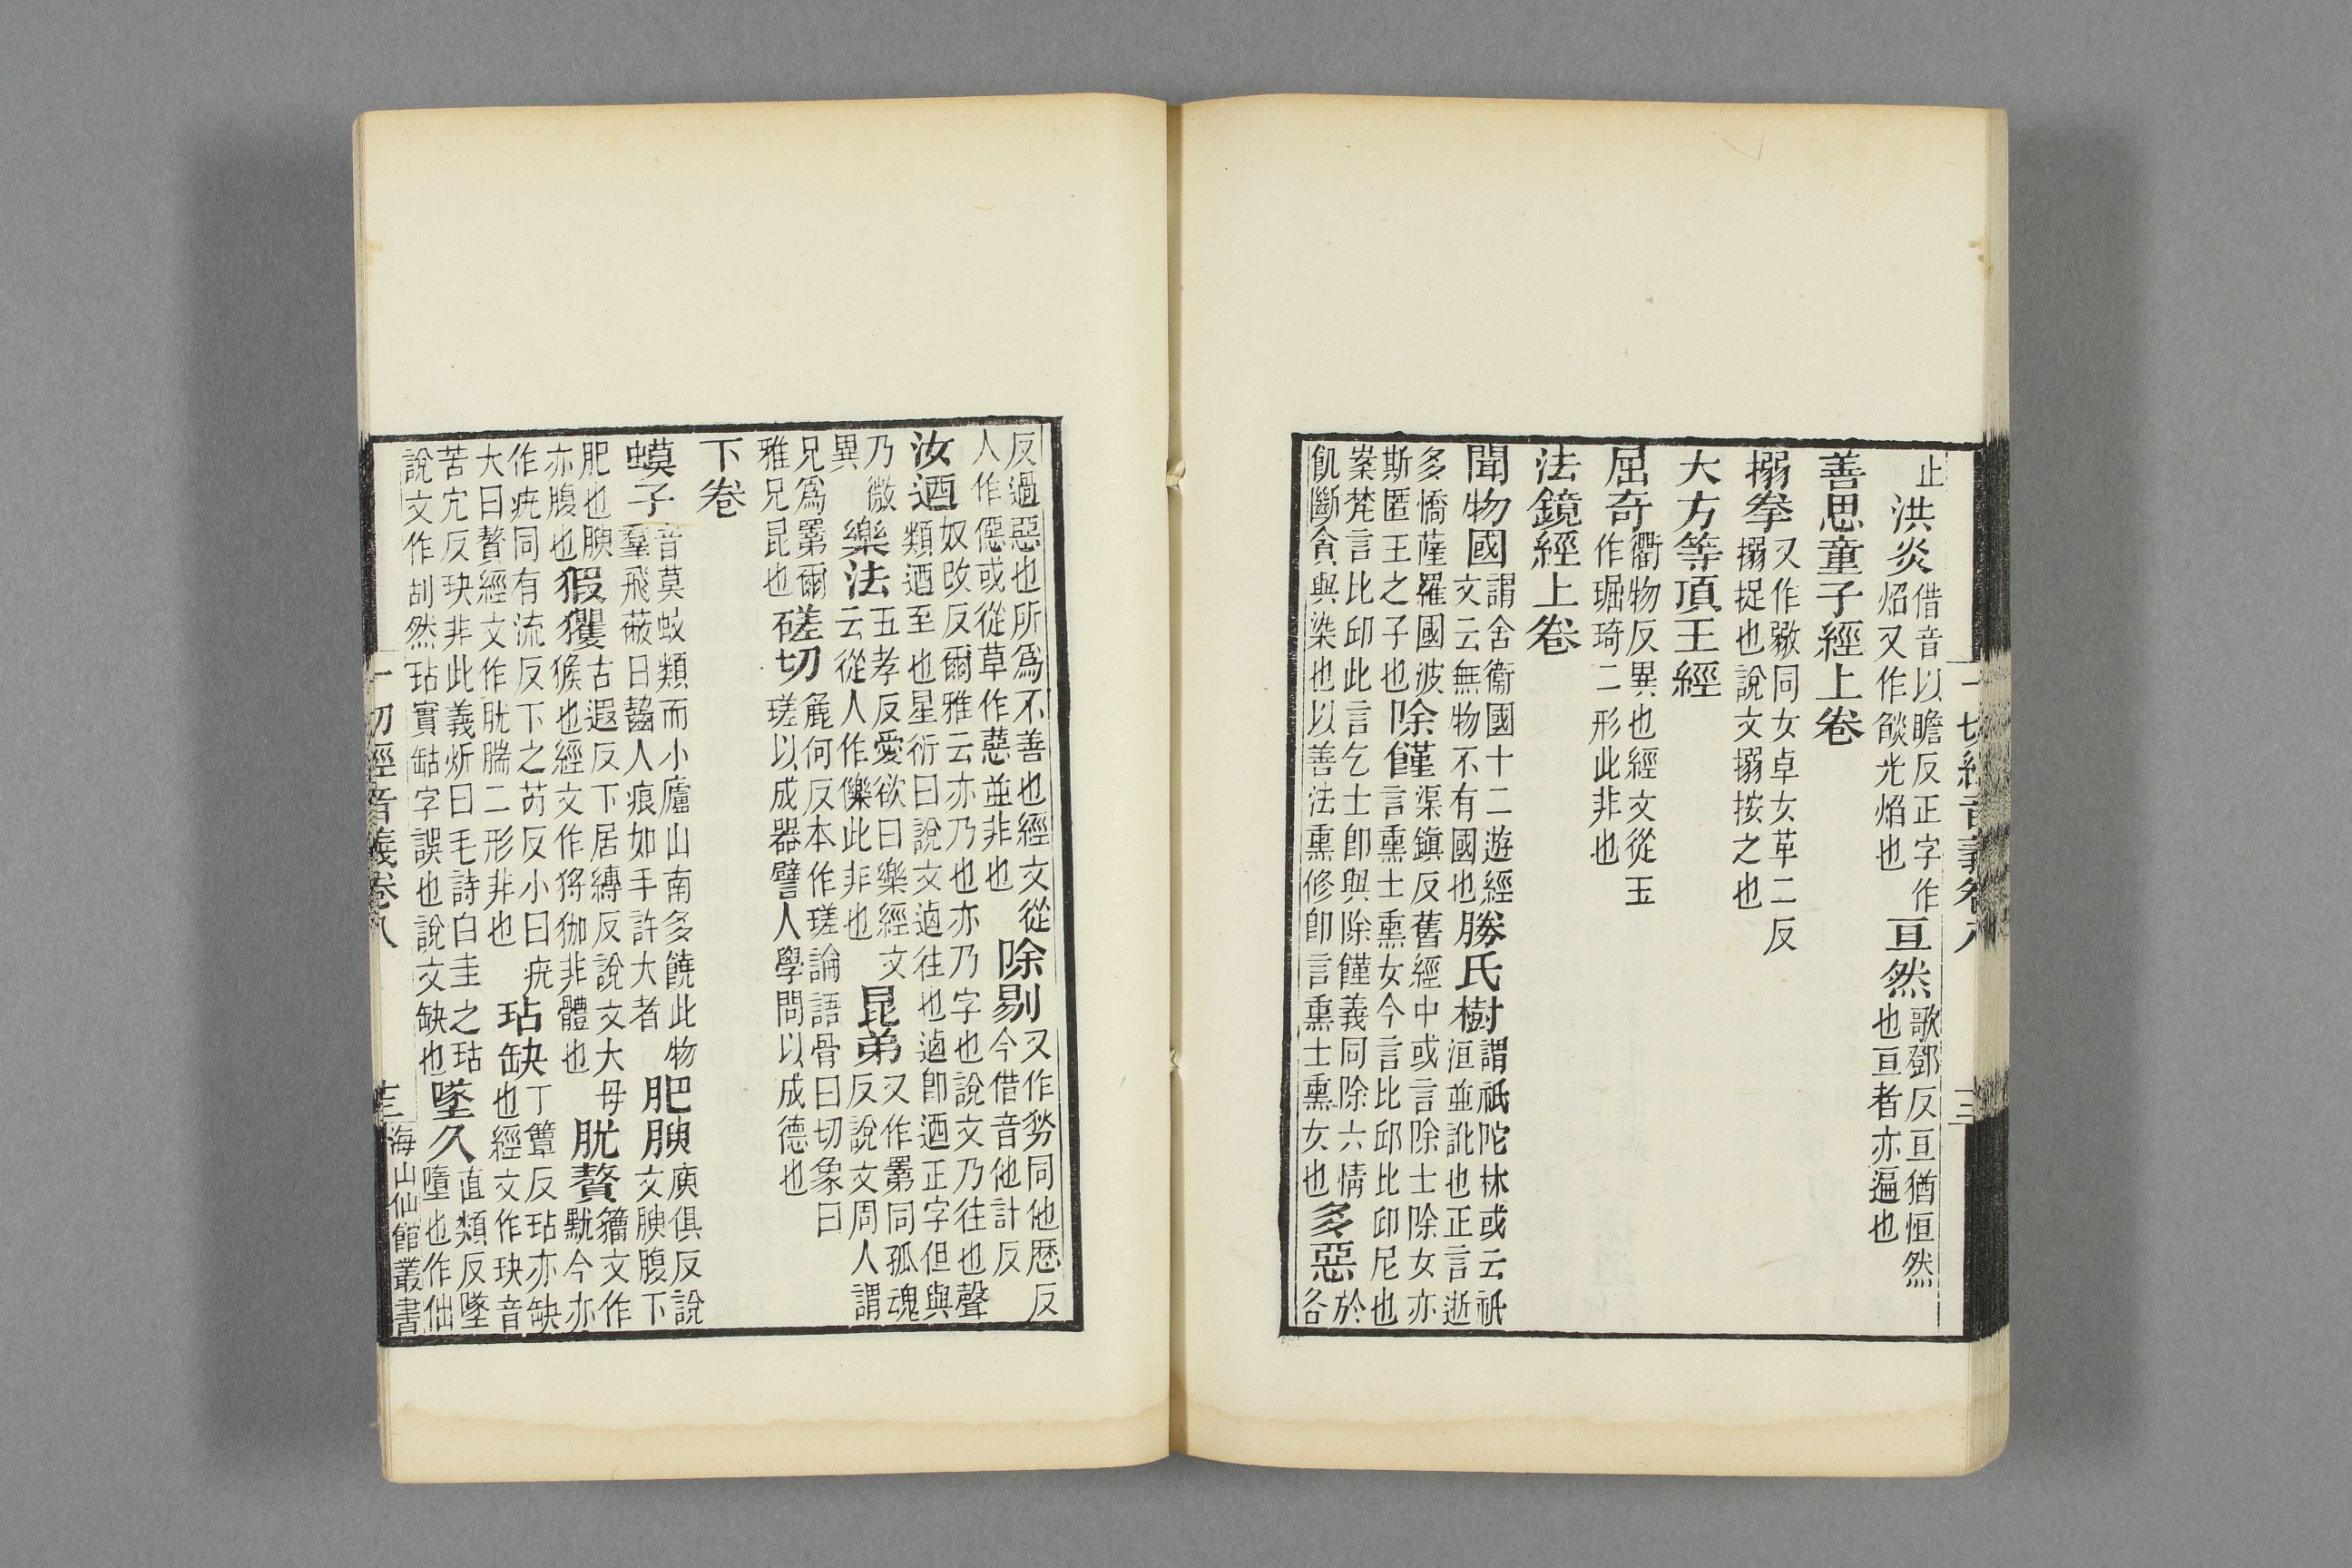 止洪炎借音以贍反正字作焰又作燄光焰也亘然歌鄧反亘猶恒然也亘者亦遍也
善思童子經上卷
搦拳又作同女卓女革二反搦捉也說文搦按之也
大方等頂王經
屈奇衢物反異也經文從玉作琦二形此非也
法鏡經上卷
聞物國謂舍衞國十二遊經文云無物不有國也勝氏樹謂祇陀林或云祇洹並訛也正言逝
多憍薩羅國波斯匿王之子也除饉渠鎭反舊經中或言除士除女亦言熏士熏女今言比邱比邱尼也
案梵言比邱此言乞士卽與除饉義同除六情飢斷貪與染也以善法熏修卽言熏士熏女也多惡於各
一切經音義卷八
反過惡也所爲不善也經文從人作僫或從草作蕙並非也除剔又作同他歷反今借音他計反
汝迺奴改反爾雅云亦乃也亦乃字也說文乃往也聲類迺至也星衍曰說文逌往也逌卽迺正字但與
乃微異樂法五孝反愛欲曰樂經文云從人作㒧此非也昆弟又作䍛同孤魂反說文周人謂
兄爲䍛爾雅兄昆也磋切麁何反本作瑳論語骨曰切象曰瑳以成器譬人學問以成德也
下卷
蟆子音莫蚊類而小廬山南多饒此物羣飛蔽日齧人痕如手許大者肥腴庾俱反說文腴腹下
肥也腴亦腹也猳玃古遐反下居縛反說文大母猴也經文作非體也肬贅籀文作今亦
作疣同有流反下之芮反小曰疣大曰贅經文作肬腨二形非也玷缺丁簟反玷亦缺也經文作玦音
苦穴反玦非此義炘曰毛詩白圭之玷說文作然玷實字誤也說文缺也墜久直類反墜墮也作
一切經音義卷八
海山仙館叢書